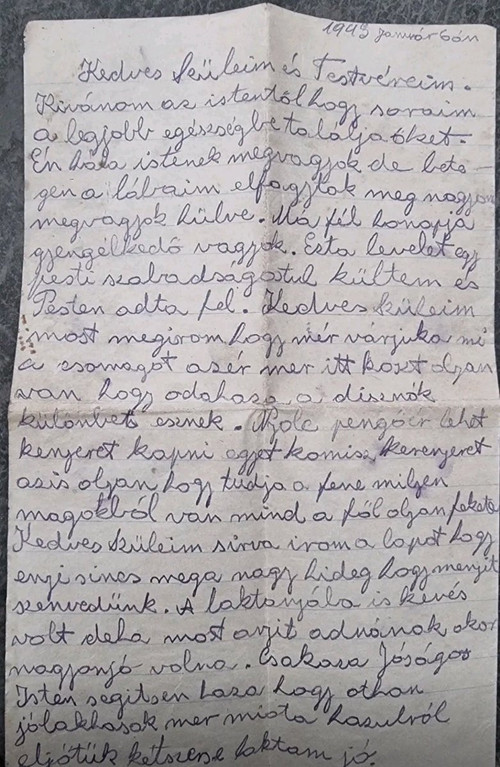 1943 januárbán
Kedves Szüleim és Testvéreim.
Kivánom az istentől hogy soraim
a legjobb egészségbe találja őket.
Én hála istenek megvagyok de bete
gen a lábaim elfagytak meg nagyon
megvagyok hülve. Má fél honapja
gjengélkedő vagyok. Ezta levelet egy
pesti szabadságostul kültem és
Pesten adta fel. Kedves Szüleim
most megirom hogy mér várjuka mi
a csomagot azér mer itt koszt oljan
van hogy odahaza a disznók
különbet esznek. pengőér lehet
kenyeret kapni egyet komisz kerenyeret
azis oljan hogy tudja a fene miljen
magokból van mind a föl oljan fekete
Kedves Szüleim sirva irom a lapot hogy
enyi sincs mega nagy hideg hogy menyit
szenvedünk. A laktanjába is kevés
volt deha most anyit adnának akor
nagyonjó volna. Csakaza Jóságos
Isten segitsen haza hogy othan
jólakhasak mer miota hazulról
eljötük kétszerse laktam jó.